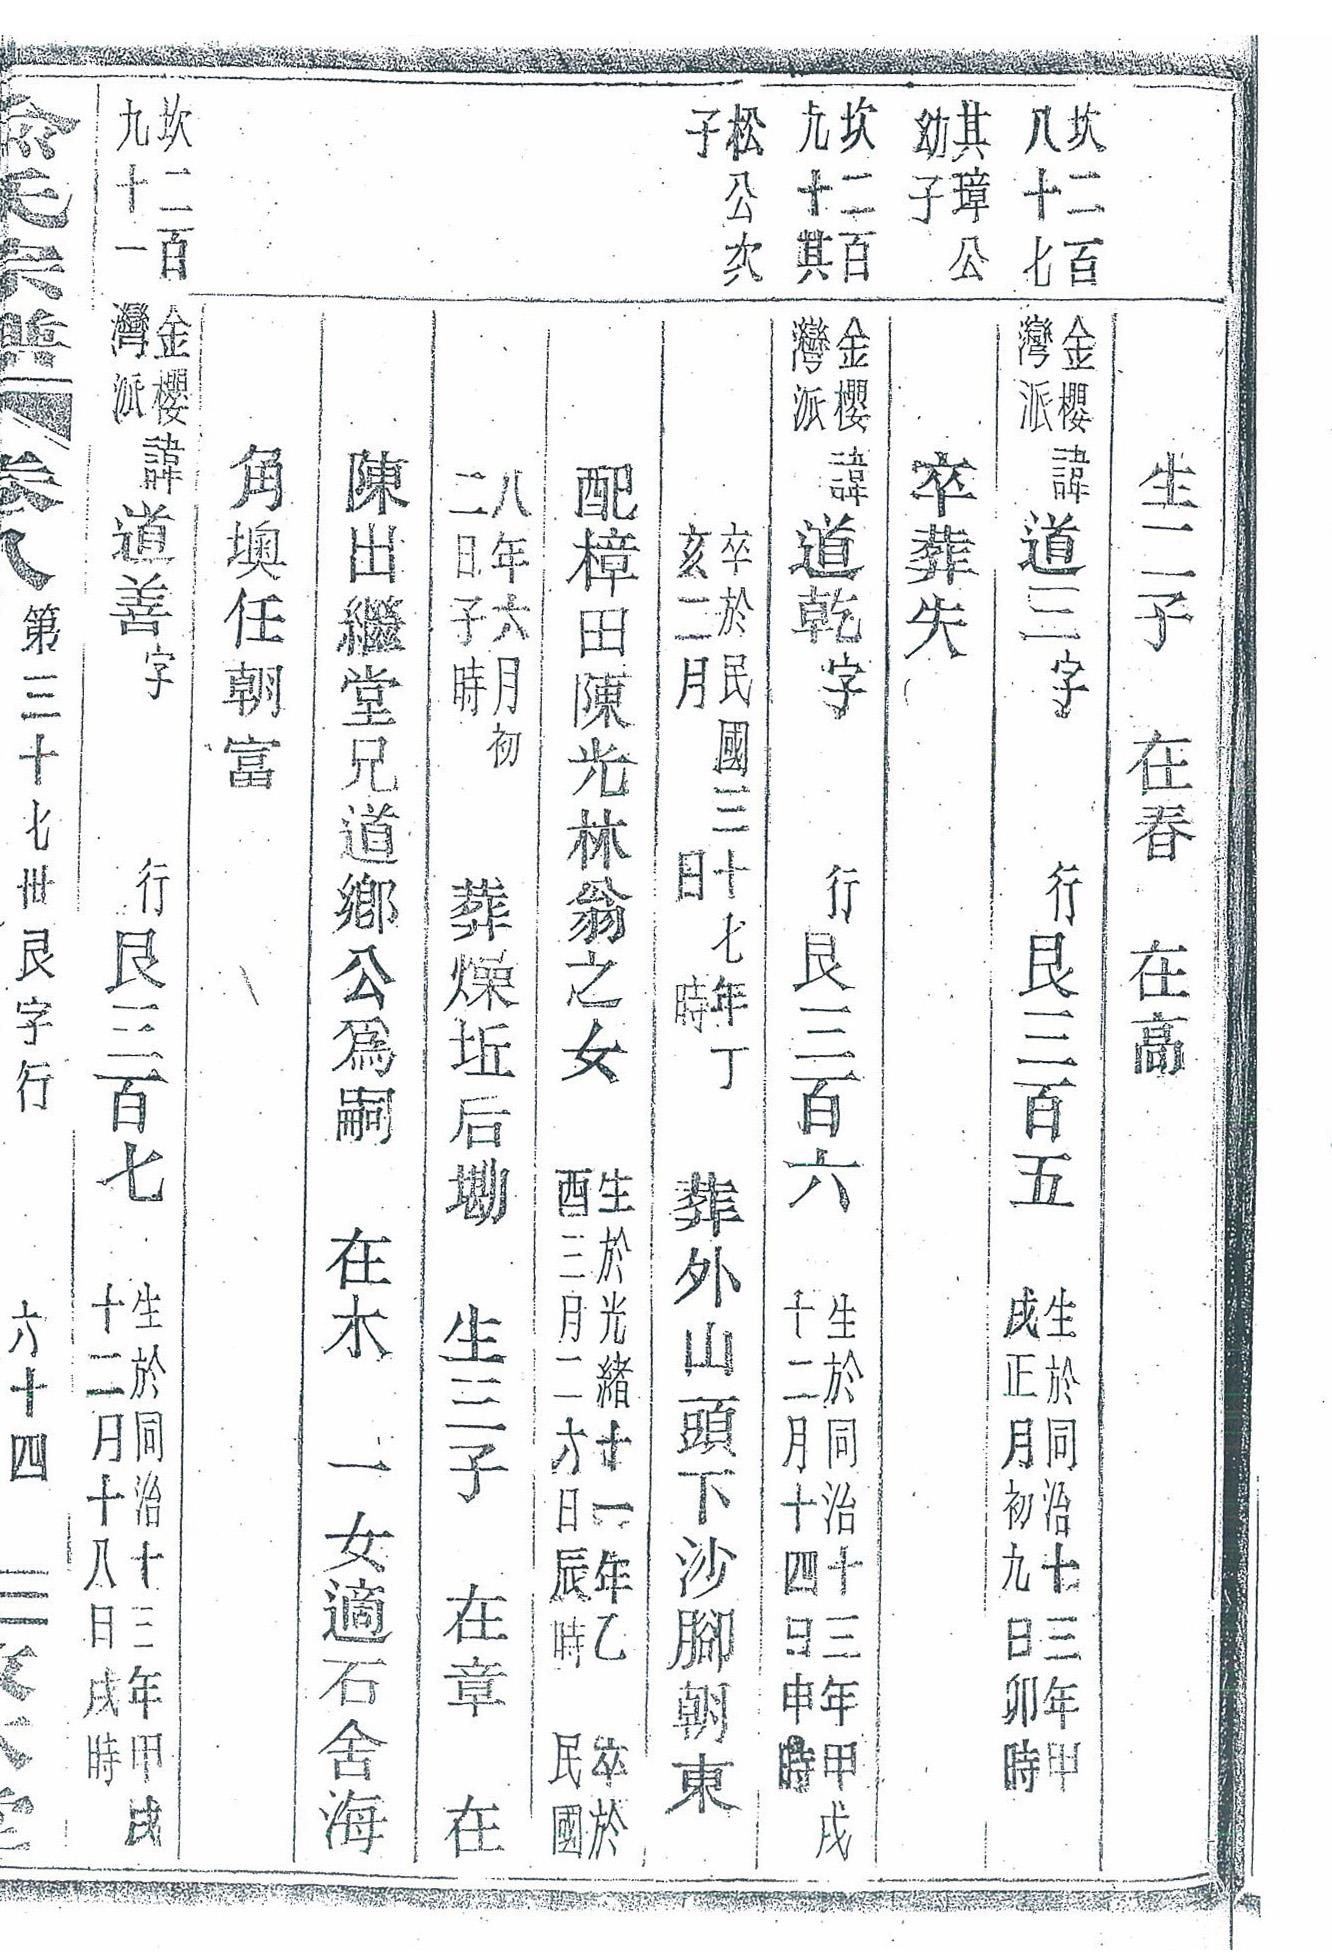 生二子 在春 在高
坎二百
八十七
金櫻
灣派
諱道三字 行艮三百五
生於同治十三年甲
戌正月初九日卯時
其璋公
幼子
卒葬失
坎二百
九十其
金櫻
灣派
諱道乾字 行艮三百六
生於同治十三年甲戌
十二月十四日申時
松公次
子
卒於民國三十七年丁
亥二月 日 時
葬外山頭下沙腳朝東
配樟田陳光林翁之女
生於光緒十一年乙
酉三月二六日辰時
卒於
民國
八年六月初
二日子時
葬燥坵后墈 生三子 在章 在
陳出繼堂兄道鄉公爲嗣 在木 一女適石舍海
角墺任朝富
坎二百
九十一
金櫻
灣派
諱道善字 行艮三百七
生於同治十三年甲戌
十二月十八日戌時
氏宗譜 卷八 第三十七世艮字行 六十四